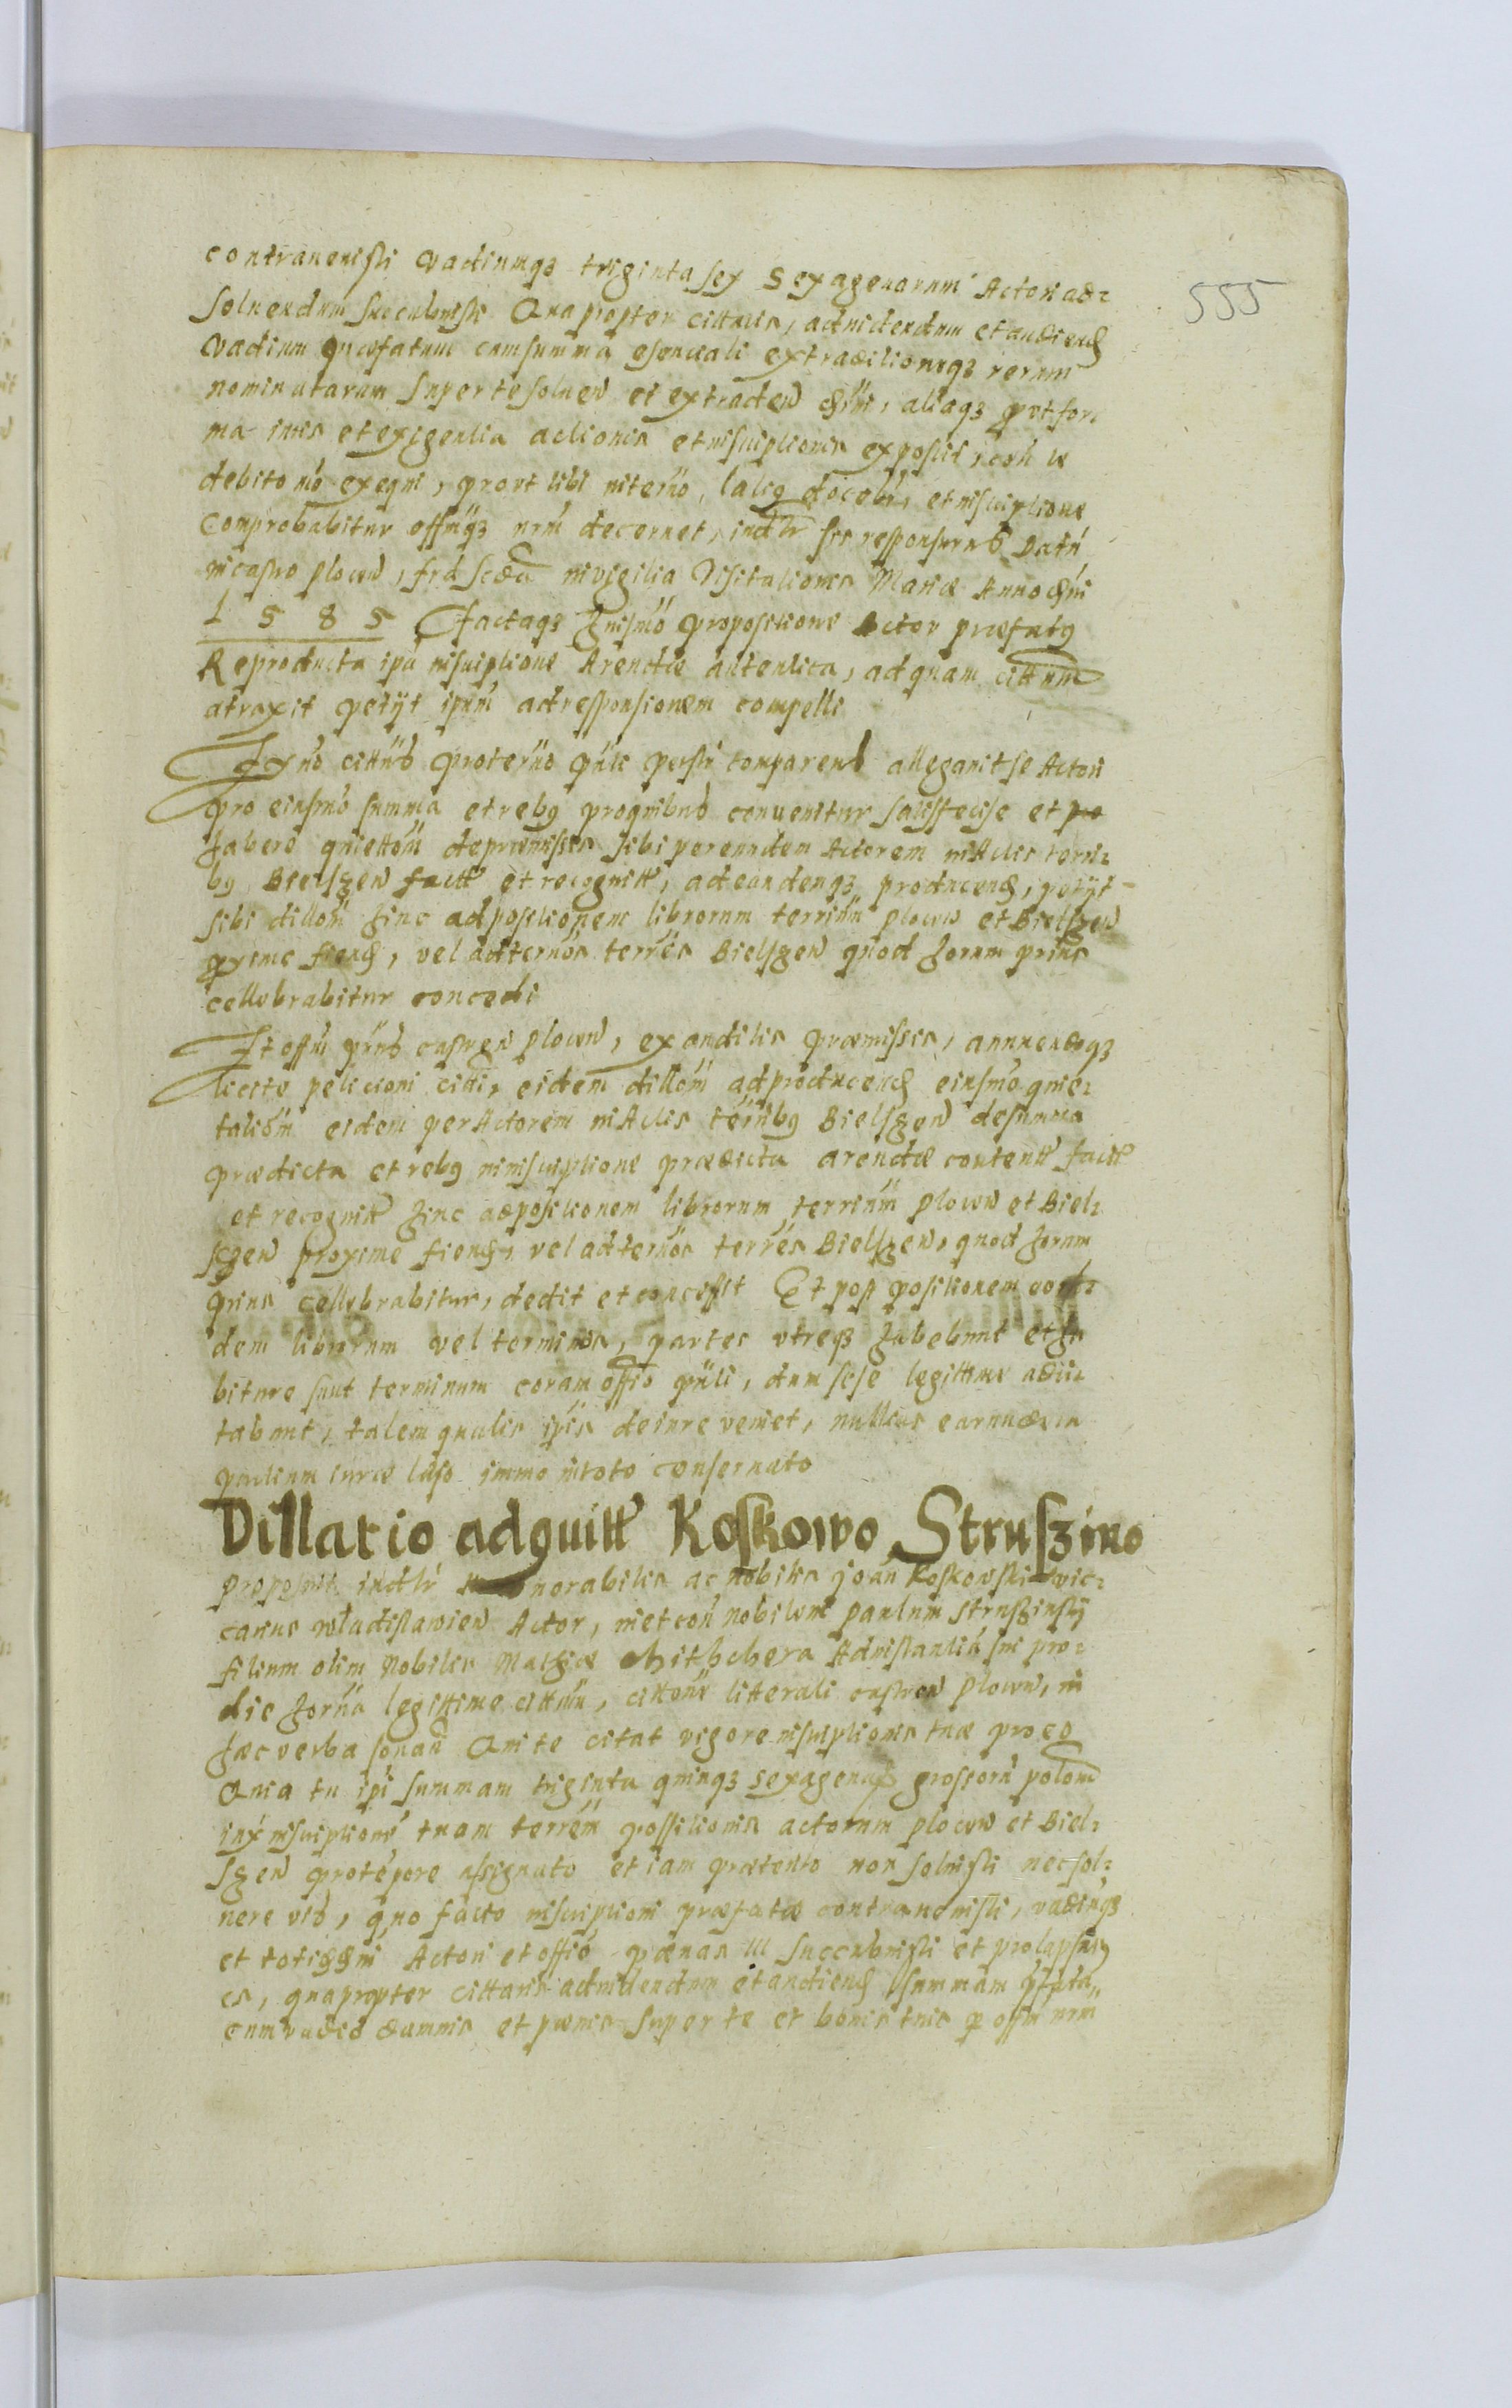 555
contrauenisti Vadiumqз triginta sex Sexagenarum Actori ad
soluendum succubuisti Quapropter cittaris, ad uidendum et audiend
Vadium præfatum cum summa esenciali extradicioneqз rerum
nominatarum super te soluen et extraden
ma iuris et exigentia actionis et inscriptionis exposcit,
debito mõ exequi, prout tibi in termõ, docebr, et inscriptione
comprobabitur offmqз nrm decernet, indlr sis responsurus Datũ
in castro plocen, in vigilia Visitationis Mariæ Anno dni
1 5 8 5 Factaqз propositione Actor præfatus
Reproducta ipa inscriptione Arendæ autentica, ad quam cittum
atraxit petijt ipum ad responsionem compelli
Et cittus compareus allegauit se Actori
pro eiusmõ summa et rebus pro quibus conuenitur satisfecise et
habere quiettom de præmissis sibi per eundem Actorem in Actis terri
bus Bielszen factt et recognitt, ad eandemqз producend, petijt
sibi dillom hinc ad positionem librorum terrium plocen et Bielszen
pxime fiend, vel ad termos terres Bielszen quod horum prius
cellebrabitur concedi
Et offm pñs castren plocen, ex auditis præmissis, annuensqз
licite peticioni citti, eidem dillom ad producend eiusmo quie
taliom eidem per Actorem in Actis terribus Bielszen de summa
prædicta et rebus in inscriptione prædicta arendæ contentt factt
et recognitt hinc ad positionem librorum terrium plocen et Biel
szen proxime fiend, vel ad termos terres Bielszen, quod horum
prius cellebrabitur, dedit et concessit Et post positionem eorũ
dem librorum vel terminos, partes utreqз habebunt et ha
biture sunt terminum coram offio pñti, dum sese legittime adci
tabunt, talem qualis ipis de iure veniet, nullius earundem
partium iure læso immo in toto conseruato
Dillatio ad quitt Koskowo Struszino
Proposuit indlr norabilis ac nobilis joan Koskowski vic
carius wladislawien Actor, in et con nobilem paulum Struszinsky
filium olim Nobilis Mathiæ Ad instantiã sui pro
die horna legittime cittum, cittone litterali castren plocen, in
hæc verba sonan Qui te citat vigore inscriptionis tuæ pro eo
Quia tu ipi summam triginta quinqз sexagenas grossorũ polom
inx inscriptione tuam terrem possitionis actorum plocen et Biel
szen pro tepore assignato et iam prætento non soluisti nec sol
uere vis, quo facto inscriptioni præfatæ contrauenisti, vadiumqз
et Actori et offio pænas III succubuisti et prolapsus
es, quapropter cittaris ad uidendum et audiend summam pfata
cum vadio damnis et pænis super te et bonis tuis p offm nrm